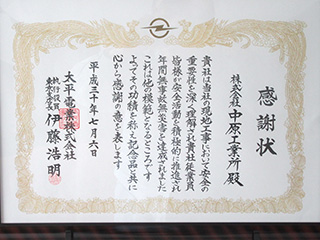 感謝状
株式会社 中原工業所 殿
貴社は当社の現地工事において安全の
重要性を深く理解され貴社従業員
皆様が安全活動を積極的に推進され
年間無事故無災害を達成されました
これは他の模範となるところです
よってその功績を称え記念品と共に
心から感謝の意を表します
平成三十年七月六日
太平電業株式会社
伊藤浩明